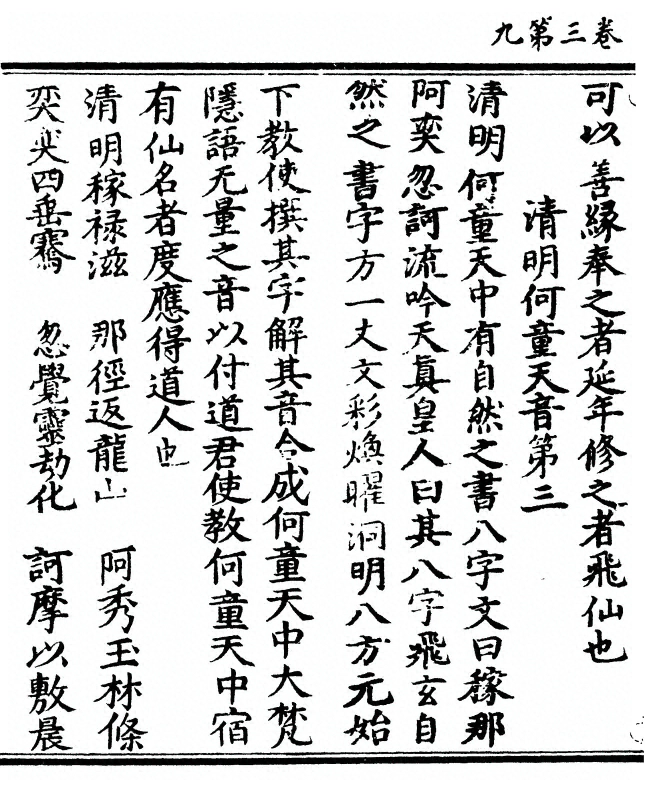 卷三第九
可以善縁奉之者延年修之者飛仙也
清明何童天音第三
清明何童天中有自然之書八字文曰稼那
阿奕忽訶流吟天真皇人曰其八字飛玄自
然之書字方一丈文彩煥曜洞明八方元始
下教使撰其字解其音合成何童天中大梵
隱語无量之音以付道君使教何童天中宿
有仙名者度應得道人也
清明稼禄滋　那徑返龍山　阿秀玉林條
奕奕四岳騫　忽覺靈劫化　訶摩以敷晨